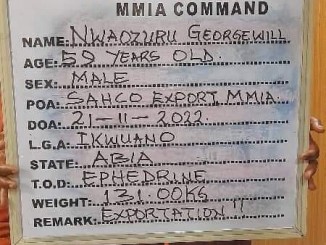 MMIA COMMAND
NAME: NWAOZURU GEORGEWILL
AGE: 59 YEARS OLD.
SEX: MALE
POA: SAHCO EXPORT, MMIA.
DOA: 21-11-2022
L.G.A: IKWUANO
STATE: ABIA
T.O.D: EPHEDRINE
WEIGHT: 131.00KG
REMARK: "EXPORTATION"